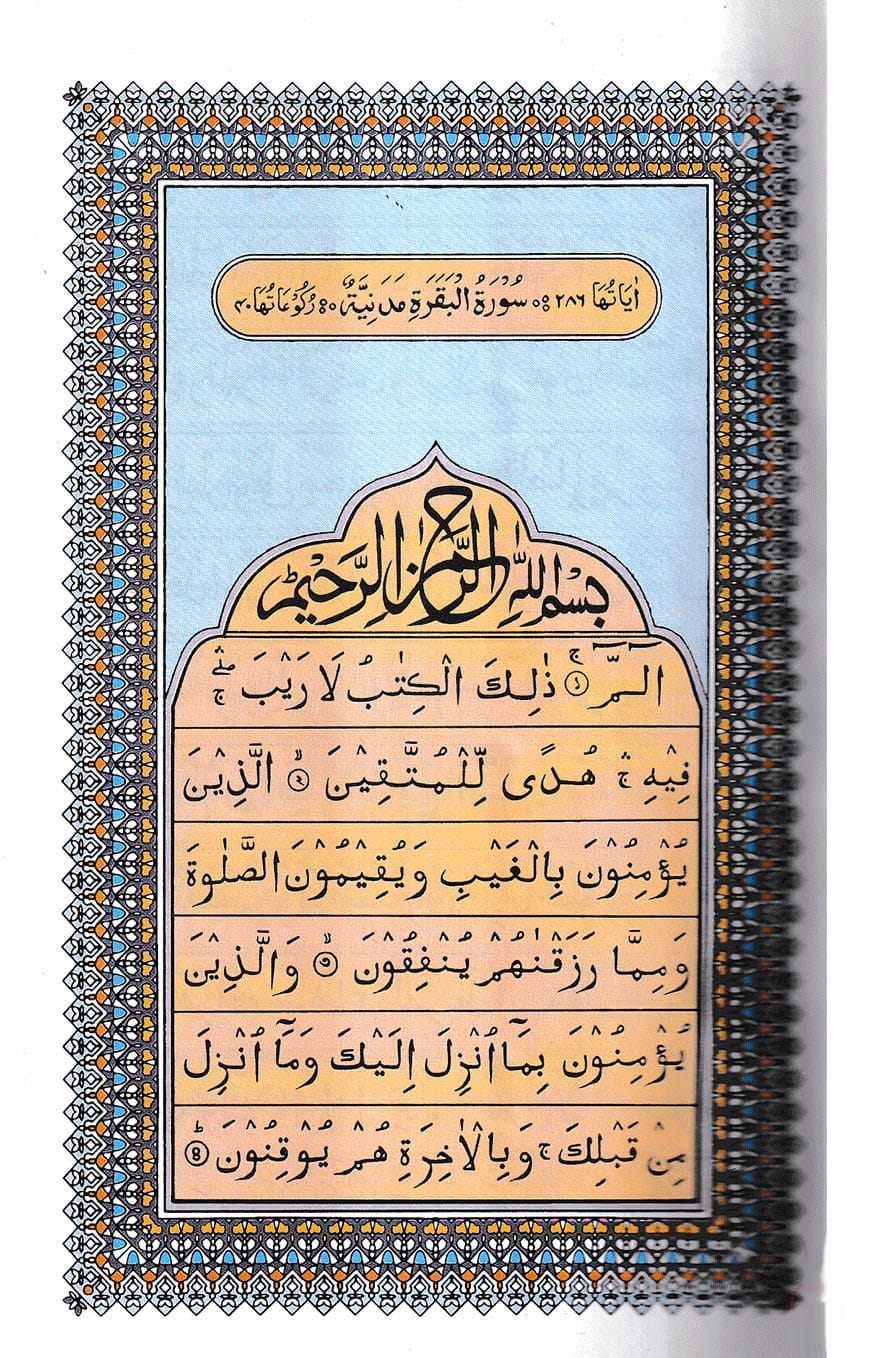 اٰيَاتُهَا ٢٨٦ سُوْرَةُ الْبَقَرَةِ مَدَنِيَّةٌ رُكُوْعَاتُهَا ۴۰
بِسْمِ اللّٰهِ الرَّحْمٰنِ الرَّحِيْمِ
الٓمّٓ ۚ ﴿۱﴾ ذٰلِكَ الْكِتٰبُ لَا رَيْبَ ۛۖۚ
فِيْهِ ۛۚ هُدًى لِّلْمُتَّقِيْنَ ۙ ﴿۲﴾ الَّذِيْنَ
يُؤْمِنُوْنَ بِالْغَيْبِ وَيُقِيْمُوْنَ الصَّلٰوةَ
وَمِمَّا رَزَقْنٰهُمْ يُنْفِقُوْنَ ۙ ﴿۳﴾ وَالَّذِيْنَ
يُؤْمِنُوْنَ بِمَآ اُنْزِلَ اِلَيْكَ وَمَآ اُنْزِلَ
مِنْ قَبْلِكَ ۚ وَبِالْاٰخِرَةِ هُمْ يُوْقِنُوْنَ ؕ ﴿۴﴾